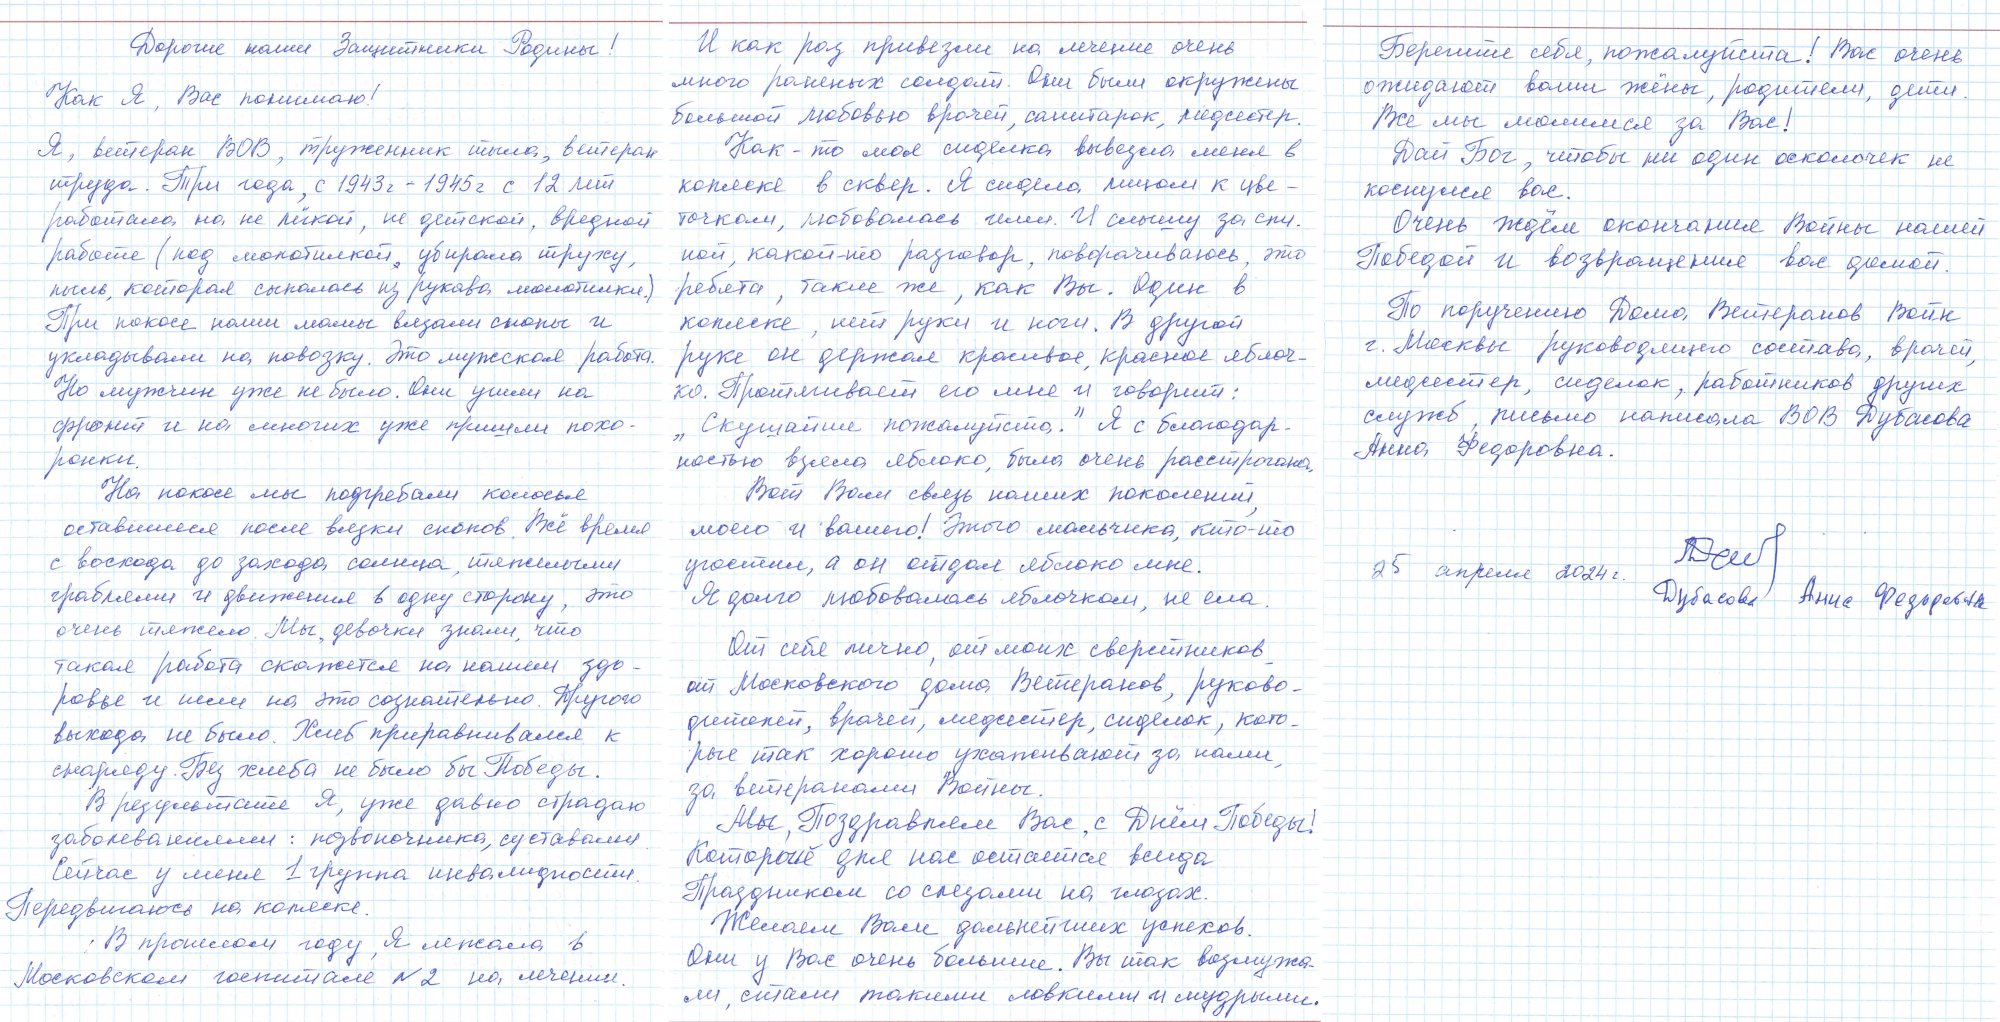 Дорогие наши Защитники Родины!
Как Я, Вас понимаю!
Я, ветеран ВОВ, труженник тыла, ветеран
труда. Три года, с 1943г - 1945г с 12 лет
работала на не лёгкой, не детской, вредной
работе (под молотилкой, убирала труху,
пыль, которая сыпалась из рукава молотилки.)
При покосе наши мамы вязали снопы и
укладывали на повозку. Это мужская работа.
Но мужчин уже не было. Они ушли на
фронт и на многих уже пришли похо-
ронки.
На покосе мы подгребали колосья
оставшиеся после вязки снопов. Всё время
с восхода до захода солнца, тяжелыми
граблями и движения в одну сторону, это
очень тяжело. Мы, девочки знали, что
такая работа скажется на нашем здо-
ровье и шли на это сознательно. Другого
выхода не было. Хлеб приравнивался к
снаряду. Без хлеба не было бы Победы.
В результате Я, уже давно страдаю
заболеваниями: позвоночника, суставами.
Сейчас у меня 1 группа инвалидности.
Передвигаюсь на коляске.
В прошлом году, Я лежала в
Московском госпитале №2 на лечении.
И как раз привезли на лечение очень
много раненых солдат. Они были окружены
большой любовью врачей, санитарок, медсестер.
Как-то моя сиделка вывезла меня в
коляске в сквер. Я сидела лицом к цве-
точкам, любовалась ими. И слышу за спи-
ной, какой-то разговор, поворачиваюсь, это
ребята, такие же, как Вы. Один в
коляске, нет руки и ноги. В другой
руке он держал красивое, красное яблоч-
ко. Протягивает его мне и говорит:
„Скушайте пожалуйста." Я с благодар-
ностью взяла яблоко, была очень расстрогана.
Вот Вам связь наших поколений,
моего и вашего! Этого мальчика, кто-то
угостил, а он отдал яблоко мне.
Я долго любовалась яблочком, не ела.
От себя лично, от моих сверстников
от Московского дома Ветеранов, руково-
дителей, врачей, медсестер, сиделок, кото-
рые так хорошо ухаживают за нами,
за ветеранами Войны.
Мы, Поздравляем Вас, с Днём Победы!
Который для нас остается всегда
Праздником со слезами на глазах.
Желаем Вам дальнейших успехов.
Они у Вас очень большие. Вы так возмужа-
ли, стали такими ловкими и мудрыми.
Берегите себя, пожалуйста! Вас очень
ожидают ваши жёны, родители, дети.
Все мы молимся за Вас!
Дай Бог, чтобы ни один осколочек не
коснулся вас.
Очень ждём окончания Войны нашей
Победой и возвращения вас домой.
По поручению Дома Ветеранов Войн
г. Москвы руководящего состава, врачей,
медсестер, сиделок, работников других
служб, письмо написала ВОВ Дубасова
Анна Федоровна.
25 апреля 2024г.
Дубасова Анна Федоровна